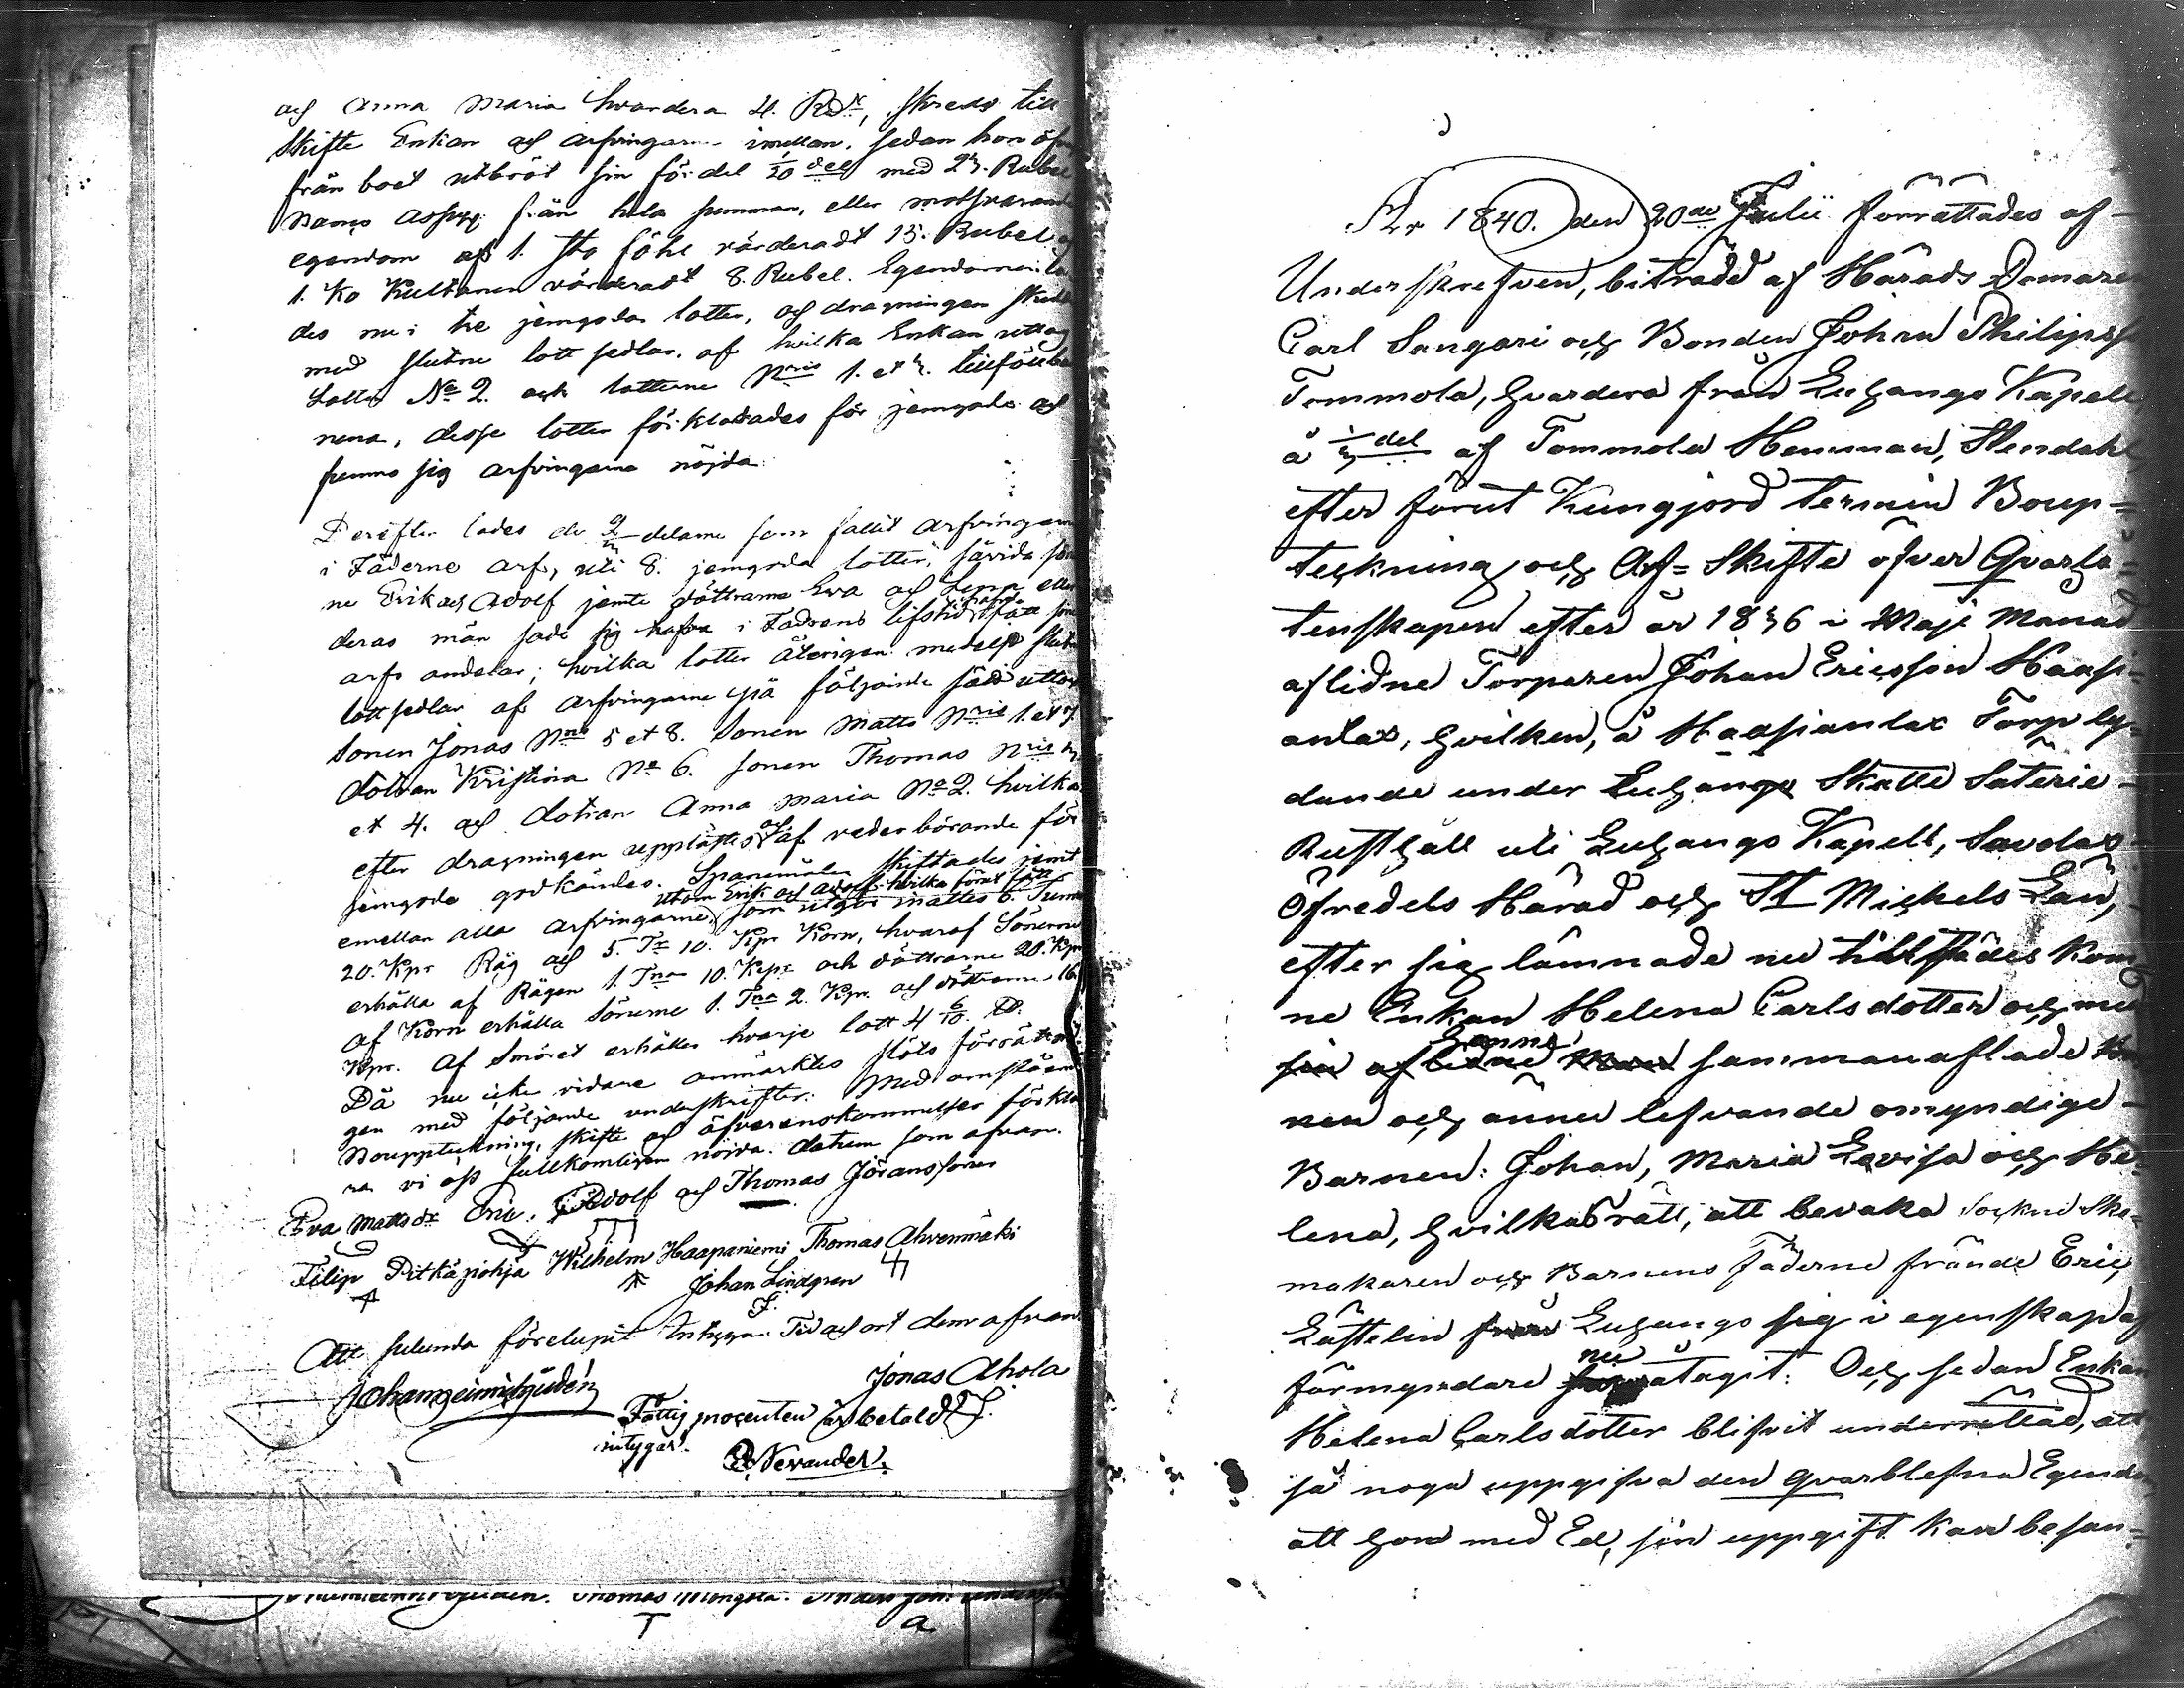 och Anna Maria hvardera 4. Rbl, skreds till
skifte Enkan och arfvingarne imellan. sedan hon
från boet utbröt sin fördel 1/20 del med 23. Rubel
från hela summan, eller motsvarande
egendom af 1. Sto föhl värderadt 15. Rubel
1. Ko Kultanen värderadt 8. Rubel. Egendomen
des nu i tre jemgoda lotter, och dragningen
med slutne lott sedlar. af hvilka Enkan
Lotten No 2. och lotterne Nris 1. et 3.
nena, desse lotter förklarades för jemgoda och
funno sig arfvingarne nöjda
Derefter lades de 2/3 delarne som fallit arfvingarne
i Fäderne arf, uti 8. jemgoda lotter, såvida
ne Erik och Adolf jemte döttrarne Eva och Lena
deras män sade sig i Fadrens lifstid
arfs andelar; hvilka lotter återigen medelst
lott sedlar af arfvingarne på följande sätt
Sonen Jonas Nris 5 et 8. Sonen Matts Nris 1. et 7.
dottran Kristina No 6. sonen Thomas Nris 3
et 4. och dottran Anna Maria No 2. hvilka
efter dragningen uppläste och af vederbörande för
jemgoda godkändes. Spanemålen skiftades jemt
utom Erik och Adolf hvilka förut fått
emellan alla arfvingarne, som utgör
20. Kpr Råg och 5. Tr 10. Kpr Korn, hvaraf Sönerne
erhålla af Rågen 1. Tna 10. Kpr och döttrarne 20. Kpr
af Korn erhålla Sönerne 1. Tna 2. Kpr. och döttrarne 16
Kpr. af Smöret erhålles hvarje lott 4 6/10. lb.
Då nu icke vidare anmärktes slöts förrättnin
gen med följande underskrifter. Med omstående
Bouppteckning, skifte och öfverenskommelser förkla
ra vi oss fullkomligen nöjda. datum som ofvan.
Eva Mattsdr Eric. Adolf och Thomas Jöranssöner
Filip Pitkäpohja Wilhelm Haapaniemi Thomas Ahvenmäki
Johan Lindgren
Att sålunda förelupit Intygar. Tid och ort som ofvan
Jonas Ahola
Fattig procenten är betald
intygar.
Nevander.
År 1840. den 20de Julii förrättades af
Underskrefven, biträdd af Härads Domaren
Carl Sangari och Bonden Johan Philipss
Tommola, hvardera från Luhango Kapell
å 1/3 del af Tommola Hemman, Stendahl
efter förut Kungjord termin Boup=
teckning och Arf=Skifte öfver Qvarlå=
tenskapen efter år 1836 i Maji Månad
aflidne Torparen Johan Ericsson Haasi=
anlax, hvilken, å Haasianlax Torp ly=
dande under Luhango Skatte Säterie
Rusthåll uti Luhango Kapell, Savolax
Öfredels Härad och St Michels Län,
efter sig lämnade nu tillstädes Kom=
ne Enkan Helena Carlsdotter och med
sin aflidne Man sammanaflade
nen och ännu lefvande omyndige
Barnen: Johan, Maria Lovisa och He=
lena, hvilkas rätt, att bevaka Socknе Sko=
makaren och Barnens Fäderne frände Eric
Lästelin från Luhango sig i egenskap af
nu
förmyndare åtagit. Och sedan Enkan
Helena Carlsdotter blifvit underrättad, att
så noga uppgifva den qvarblefna Egendo
att hon med Ed, sin uppgift kan besan=